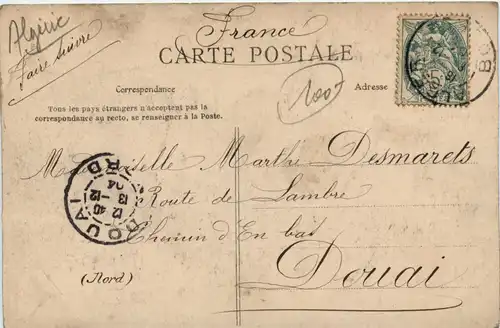 Algérie
Faire suivre
France
CARTE POSTALE
Correspondance
Adresse
Tous les pays étrangers n'acceptent pas la
correspondance au recto, se renseigner à la Poste.
100
Mademoiselle Marthe Desmarets
Route de Lambre
Chemin d'En bas
Douai
(Nord)
DOUAI
12 40
13 - 12
04
NORD